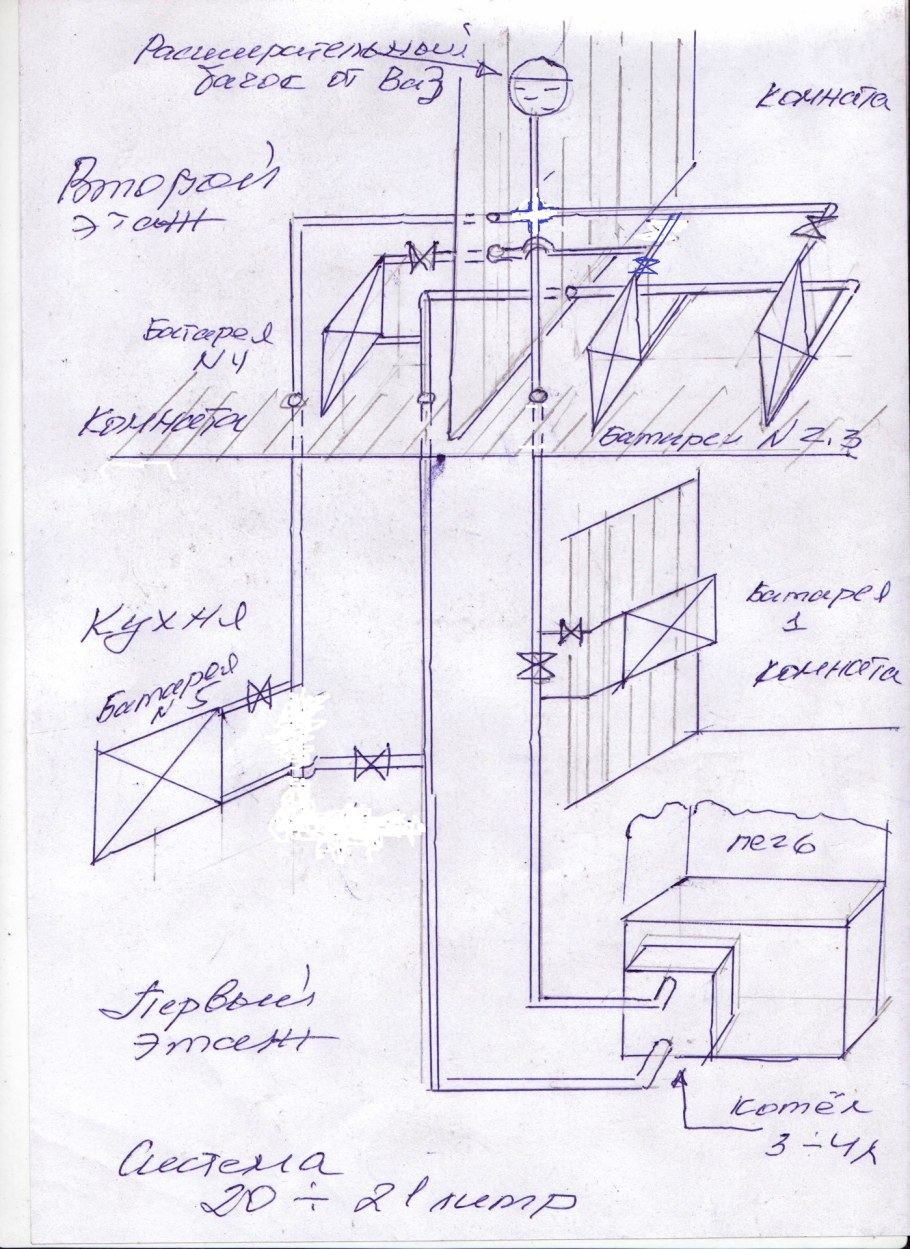 Расширательный
бачок от Ваз
комната
Второй
этаж
Батарея
N 4
комната
Батареи N 2.3
Кухня
Батарея
N 5
Батарея
1
комната
печь
Первый
этаж
котёл
3 ÷ 4 л
Система
20 ÷ 21 литр